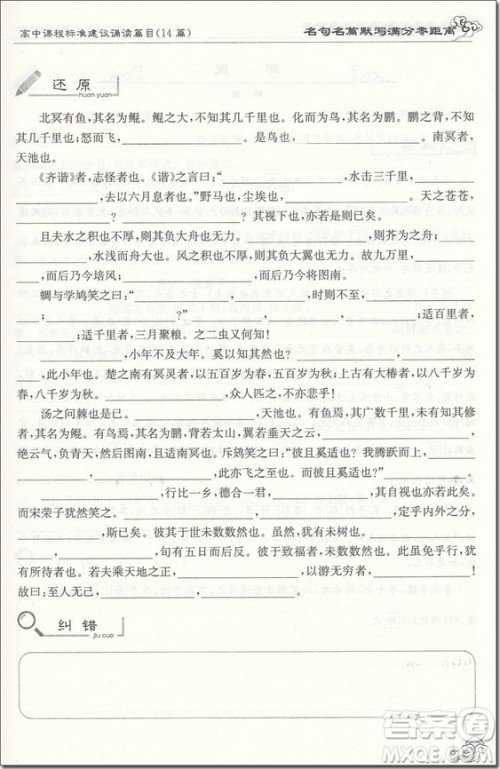 高中课程标准建议诵读篇目(14篇)
名句名篇默写满分零距离
还原
huan yuan
北冥有鱼,其名为鲲。鲲之大,不知其几千里也。化而为鸟,其名为鹏。鹏之背,不知
其几千里也;怒而飞,____________。是鸟也,____________。南冥者,
天池也。
《齐谐》者,志怪者也。《谐》之言曰:“____________,水击三千里,
____________,去以六月息者也。”野马也,尘埃也,____________。天之苍苍,
____________?____________?其视下也,亦若是则已矣。
且夫水之积也不厚,则其负大舟也无力。____________,则芥为之舟;
____________,水浅而舟大也。风之积也不厚,则其负大翼也无力。故九万里,
____________,而后乃今培风;____________,而后乃今将图南。
蜩与学鸠笑之曰:“____________,____________,时则不至,
____________,____________?”适莽苍者,____________;适百里者,
____________;适千里者,三月聚粮。之二虫又何知!
____________,小年不及大年。奚以知其然也?____________,
____________,此小年也。楚之南有冥灵者,以五百岁为春,五百岁为秋;上古有大椿者,以八千岁为
春,八千岁为秋。____________,众人匹之,不亦悲乎!
汤之问棘也是已:____________,天池也。有鱼焉,其广数千里,未有知其修
者,其名为鲲。有鸟焉,其名为鹏,背若太山,翼若垂天之云;____________,
绝云气,负青天,然后图南,且适南冥也。斥鴳笑之曰:“彼且奚适也?我腾跃而上,
____________,____________,此亦飞之至也。而彼且奚适也?”____________。
____________,行比一乡,德合一君,____________,其自视也亦若此矣。
而宋荣子犹然笑之。____________,____________,定乎内外之分,
____________,斯已矣。彼其于世未数数然也。虽然,犹有未树也。
____________,____________,旬有五日而后反。彼于致福者,未数数然也。此虽免乎行,犹
有所待者也。若夫乘天地之正,____________,以游无穷者,____________!
故曰:至人无己,____________,____________。
纠错
jiu cuo
答案圈
MXQE.COM